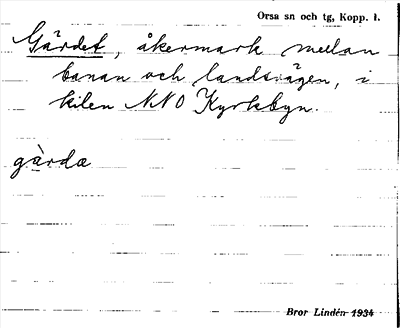 Orsa sn och tg, Kopp. l.
Gärdet, åkermark mellan
banan och landsvägen, i
kilen NNO Kyrkbyn.
gàrdæ
Bror Lindén 1934